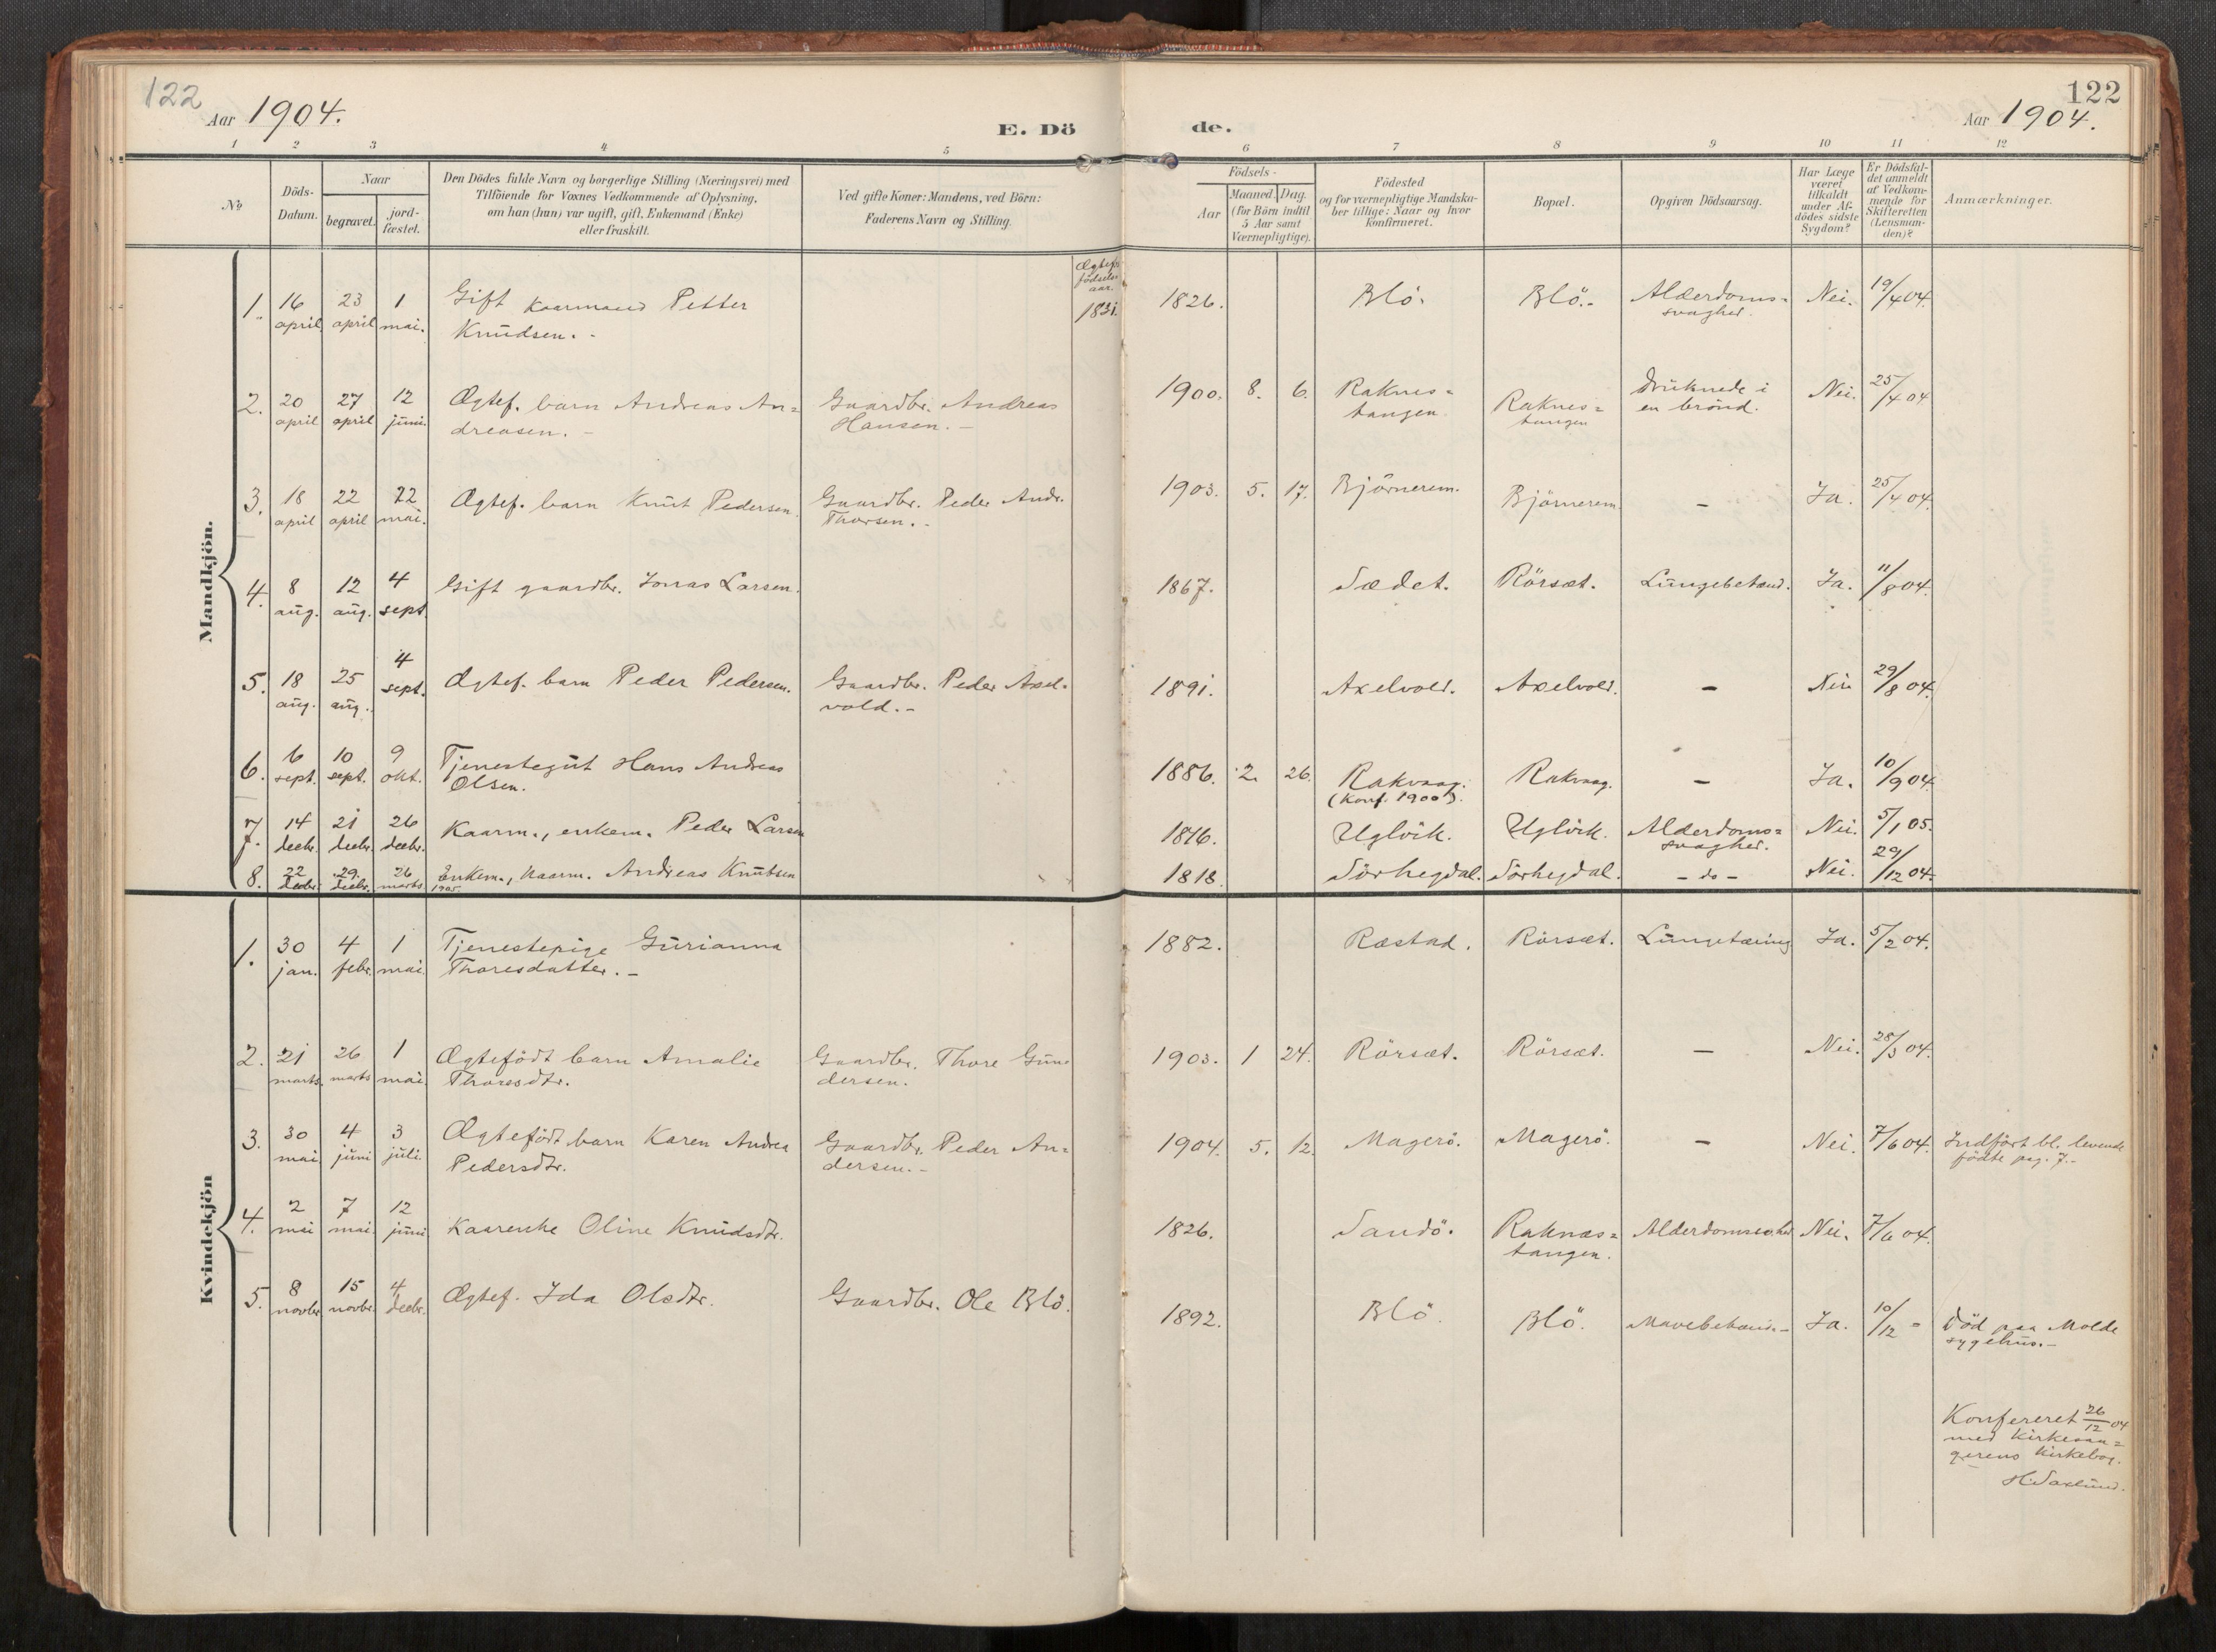 122
Aar 1904.
E. Dö
de.
122
Aar 1904.
1 2 3 4 5 6 7 8 9 10 11 12
No
Döds-
Datum.
Naar
begravet.
jord-
fæstet.
Den Dödes fulde Navn og borgerlige Stilling (Næringsvei) med
Tilföiende for Voxnes Vedkommende af Oplysning,
om han (hun) var ugift, gift, Enkemand (Enke)
eller fraskilt.
Ved gifte Koner: Mandens, ved Börn:
Faderens Navn og Stilling.
Födsels-
Aar
Maaned. Dag.
(for Börn indtil
5 Aar samt
Værnepligtige).
Födested
og for værnepligtige Mandska-
ber tillige: Naar og hvor
konfirmeret.
Bopæl.
Opgiven Dödsaarsag.
Har Læge
været
tilkaldt
under Af-
dödes sidste
Sygdom?
Er Dödsfal-
det anmeldt
af Vedkom-
mende for
Skifteretten
(Lensman-
den)?
Anmærkninger.
Mandkjön.
Ægtef.
födsels-
aar.
1. 16 april 23 april 1 mai. Gift kaarmand Petter
Knudsen. -
1831. 1826. Blö. Blö.- Alderdoms=
svaghed. Nei. 19/4 04.
2. 20 april 27 april 12 juni. Ægtef. barn Andreas An=
dreasen. -
Gaardbr. Andreas
Hansen. -
1900. 8. 6. Raknes=
tangen. Raknes=
tangen druknede i
en brönd. Nei. 25/4 04
3. 18 april 22 april 22 mai. Ægtef. barn Knut Pedersen.
Gaardbr. Peder Andr.
Thorsen. -
1903. 5. 17. Björnerem. Björnerem - Ja. 25/4 04.
4. 8 aug. 12 aug. 4 sept. Gift gaardbr. Jonas Larsen.
1867. Sædet. Rörsæt. Lungebetænd. Ja. 11/8 04.
5. 18 aug. 25 aug. 4 sept. Ægtef. barn Peder Pedersen.
Gaardbr. Peder Axel-
vold. -
1891. Axelvold. Axelvold. - Nei 29/8 04.
6. 6 sept. 10 sept. 9 okt. Tjenestegut Hans Andreas
Olsen.
1886. 2. 26. Rakvaag.
(Konf. 1900). Rakvaag. - Ja. 10/9 04.
7. 14 decbr. 21 decbr. 26 decbr. Kaarm., enkem. Peder Larsen
1816. Uglvik. Uglvik. Alderdoms=
svaghed. Nei. 5/1 05.
8. 22 decbr. 29 decbr. 26 marts 1905. Enkem., kaarm. Andreas Knutsen
1818. Sörhegdal. Sörhegdal. - do - Nei. 29/12 04.
Kvindekjön
1. 30 jan. 4 febr. 1 mai. Tjenestepige Gurianna
Thoresdatter. -
1882. Ræstad. Rörsæt. Lungetæring Ja. 5/2 04.
2. 21 marts 26 marts 1 mai. Ægtefödt barn Amalie
Thoresdtr.
Gaardbr. Thore Gun
dersen.
1903. 1 24. Rörsæt. Rörsæt. - Nei. 28/3 04.
3. 30 mai 4 juni 3 juli. Ægtefödt barn Karen Andrea
Pedersdtr.
Gaardbr. Peder An=
dersen. -
1904. 5. 12. Magerö. Magerö. - Nei. 7/6 04. Indfört bl. levende
födte pag. 7. -
4. 2 mai 7 mai 12 juni Kaarenke Oline Knudsdtr.
1826. Sandö. Raknæs=
tangen. Nei. 7/6 04.
5. 8 novbr. 15 novbr. 4 decbr. Ægtef. Ida Olsdtr.
Gaardbr. Ole Blö.
1892. Blö. Blö. Mavebetænd. - Ja. 10/12 = Död paa Molde
sygehus. -
Konfereret 26/12 04
med kirkesan=
gerens kirkebog.
H. Saxlund.